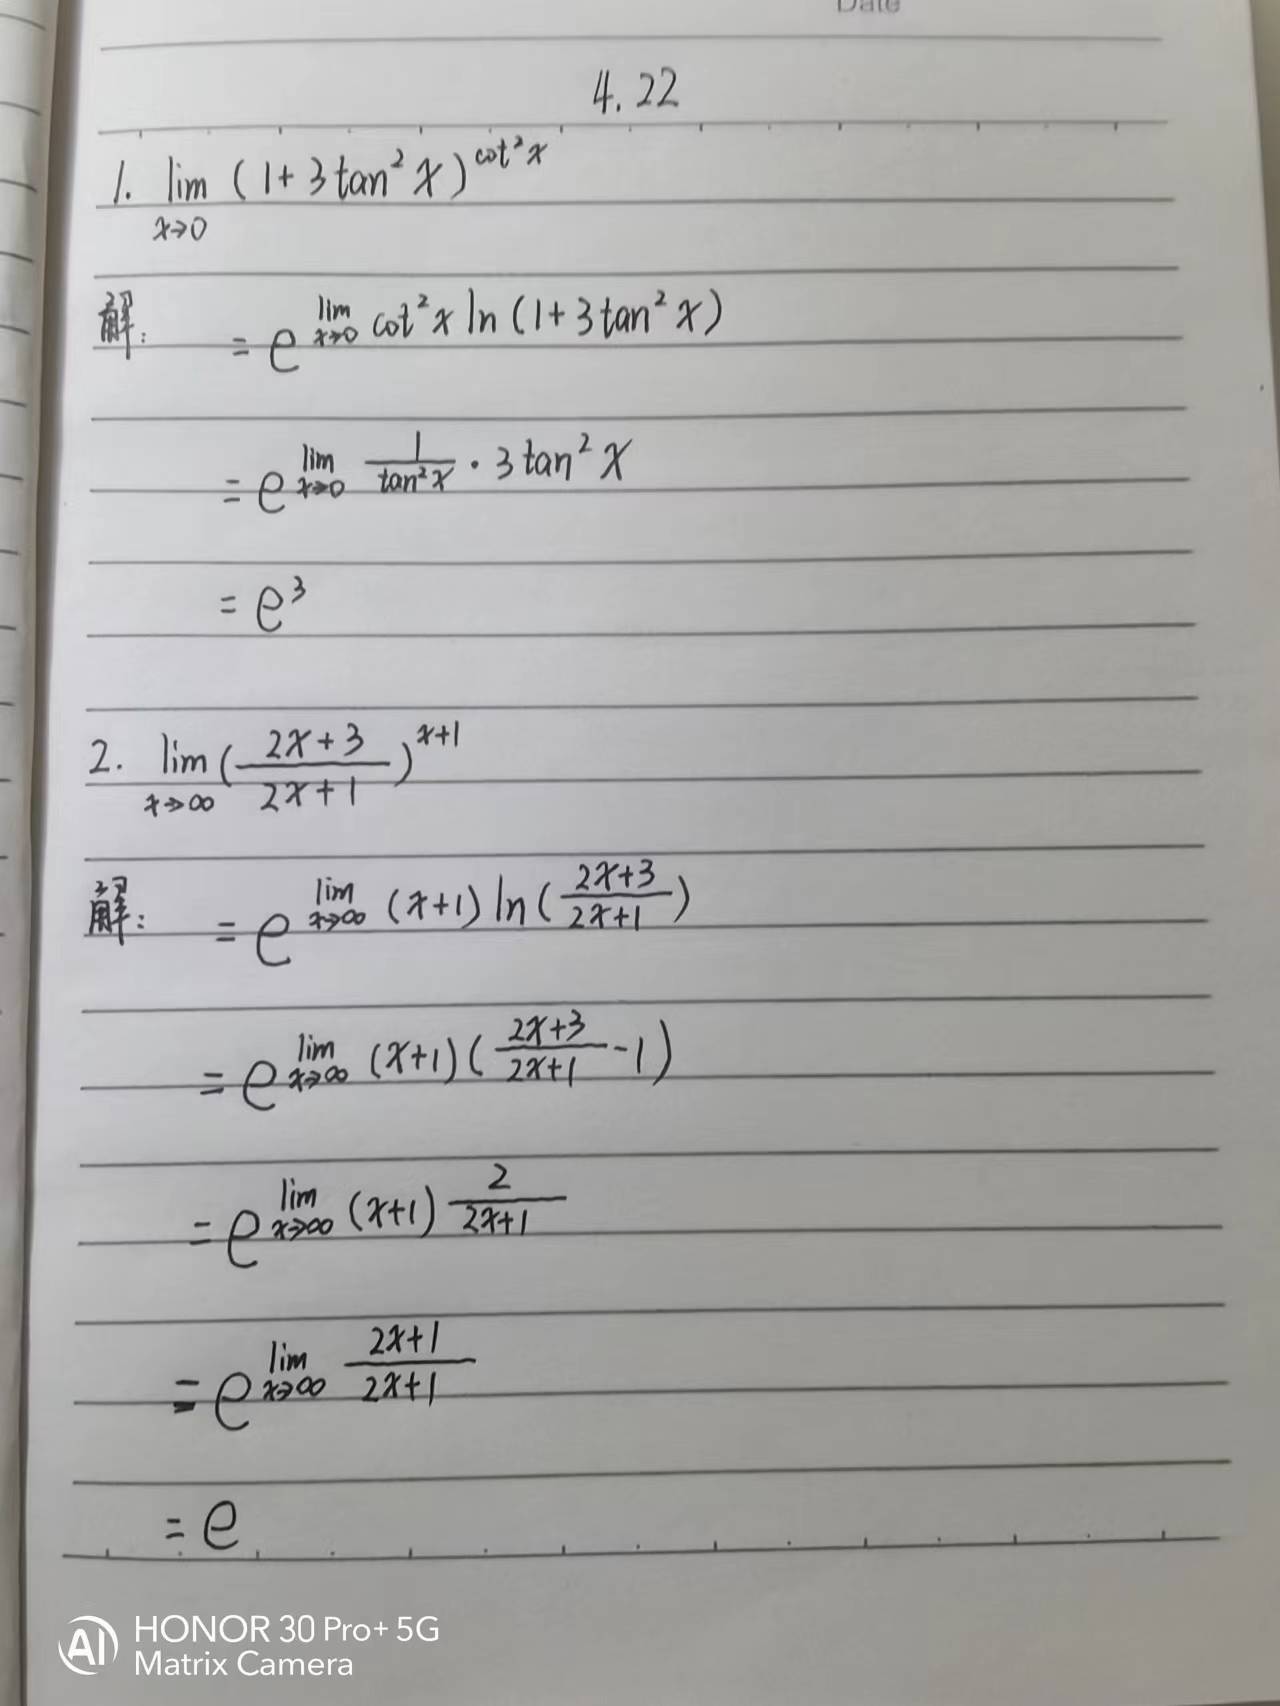 Date
4.22
1. lim (1+3tan²x)^cot²x
x→0
解: = e^lim x→0 cot²x ln(1+3tan²x)
= e^lim x→0 1/tan²x · 3tan²x
= e³
2. lim (2x+3/2x+1)^x+1
x→∞
解: = e^lim x→∞ (x+1) ln(2x+3/2x+1)
= e^lim x→∞ (x+1)(2x+3/2x+1 -1)
= e^lim x→∞ (x+1) 2/2x+1
= e^lim x→∞ 2x+1/2x+1
= e
AI HONOR 30 Pro+ 5G
Matrix Camera